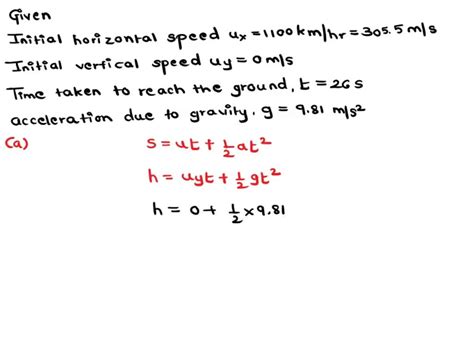 Given
Initial horizontal speed ux = 1100 km/hr = 305.5 m/s
Initial vertical speed uy = 0 m/s
Time taken to reach the ground, t = 26 s
acceleration due to gravity, g = 9.81 m/s²
(a) s = ut + ½at²
h = uyt + ½gt²
h = 0 + ½ × 9.81